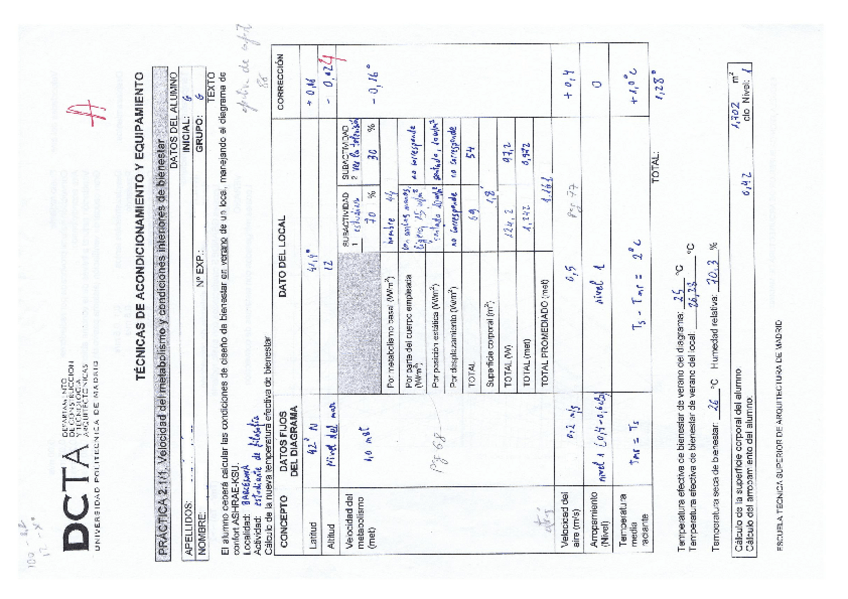 DCTA
DEPARTAMENTO
DE CONSTRUCCIÓN
Y TECNOLOGÍA
ARQUITECTÓNICAS
UNIVERSIDAD POLITÉCNICA DE MADRID
TÉCNICAS DE ACONDICIONAMIENTO Y EQUIPAMIENTO
PRÁCTICA 2.1/1. Velocidad del metabolismo y condiciones interiores de bienestar
DATOS DEL ALUMNO
APELLIDOS: INICIAL: G
NOMBRE: Nº EXP.: GRUPO: G
TEXTO
El alumno deberá calcular las condiciones de diseño de bienestar en verano de un local, manejando el diagrama de
confort ASHRAE-KSU.
Localidad: BARCELONA
Actividad: estudiante de filosofía
Cálculo de la nueva temperatura efectiva de bienestar
CONCEPTO DATOS FIJOS DEL DIAGRAMA DATO DEL LOCAL CORRECCIÓN
Latitud 42° N 41,4° + 0,16
Altitud Nivel del mar 12 - 0,024
Velocidad del metabolismo (met) 1,0 met - 0,16°
SUBACTIVIDAD 1 estudiar 70 % SUBACTIVIDAD 2 ver la televisión 30 %
Por metabolismo basal (W/m²) hombre 44
Por parte del cuerpo empleada (W/m²) no corresponde
Por posición estática (W/m²)
Por desplazamiento (W/m²) no corresponde no corresponde
TOTAL 69 54
Superficie corporal (m²) 1,8
TOTAL (W) 124,2 97,2
TOTAL (met) 1,242 0,972
TOTAL PROMEDIADO (met) 1,161
Pg 68
Velocidad del aire (m/s) 0,2 m/s 0,5 Pg 77 + 0,4
Arropamiento (Nivel) nivel 1 nivel 1 0
Temperatura media radiante Tmr = Ts Ts - Tmr = 2°C + 1,0°C
TOTAL: 1,28°
Temperatura efectiva de bienestar de verano del diagrama: 25 °C
Temperatura efectiva de bienestar de verano del local: 26,28 °C
Temperatura seca de bienestar: 26 °C Humedad relativa: 70.3 %
Cálculo de la superficie corporal del alumno 1,702 m²
Cálculo del arropamiento del alumno. 0,42 clo Nivel: 1
ESCUELA TÉCNICA SUPERIOR DE ARQUITECTURA DE MADRID